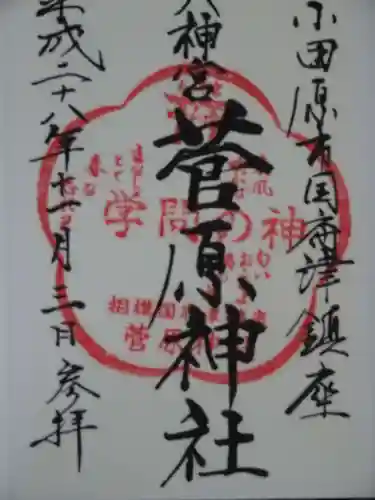 小田原市国府津鎮座
天神宮
菅原神社
平成二十八年十一月三日参拝
学問の神
菅原神社